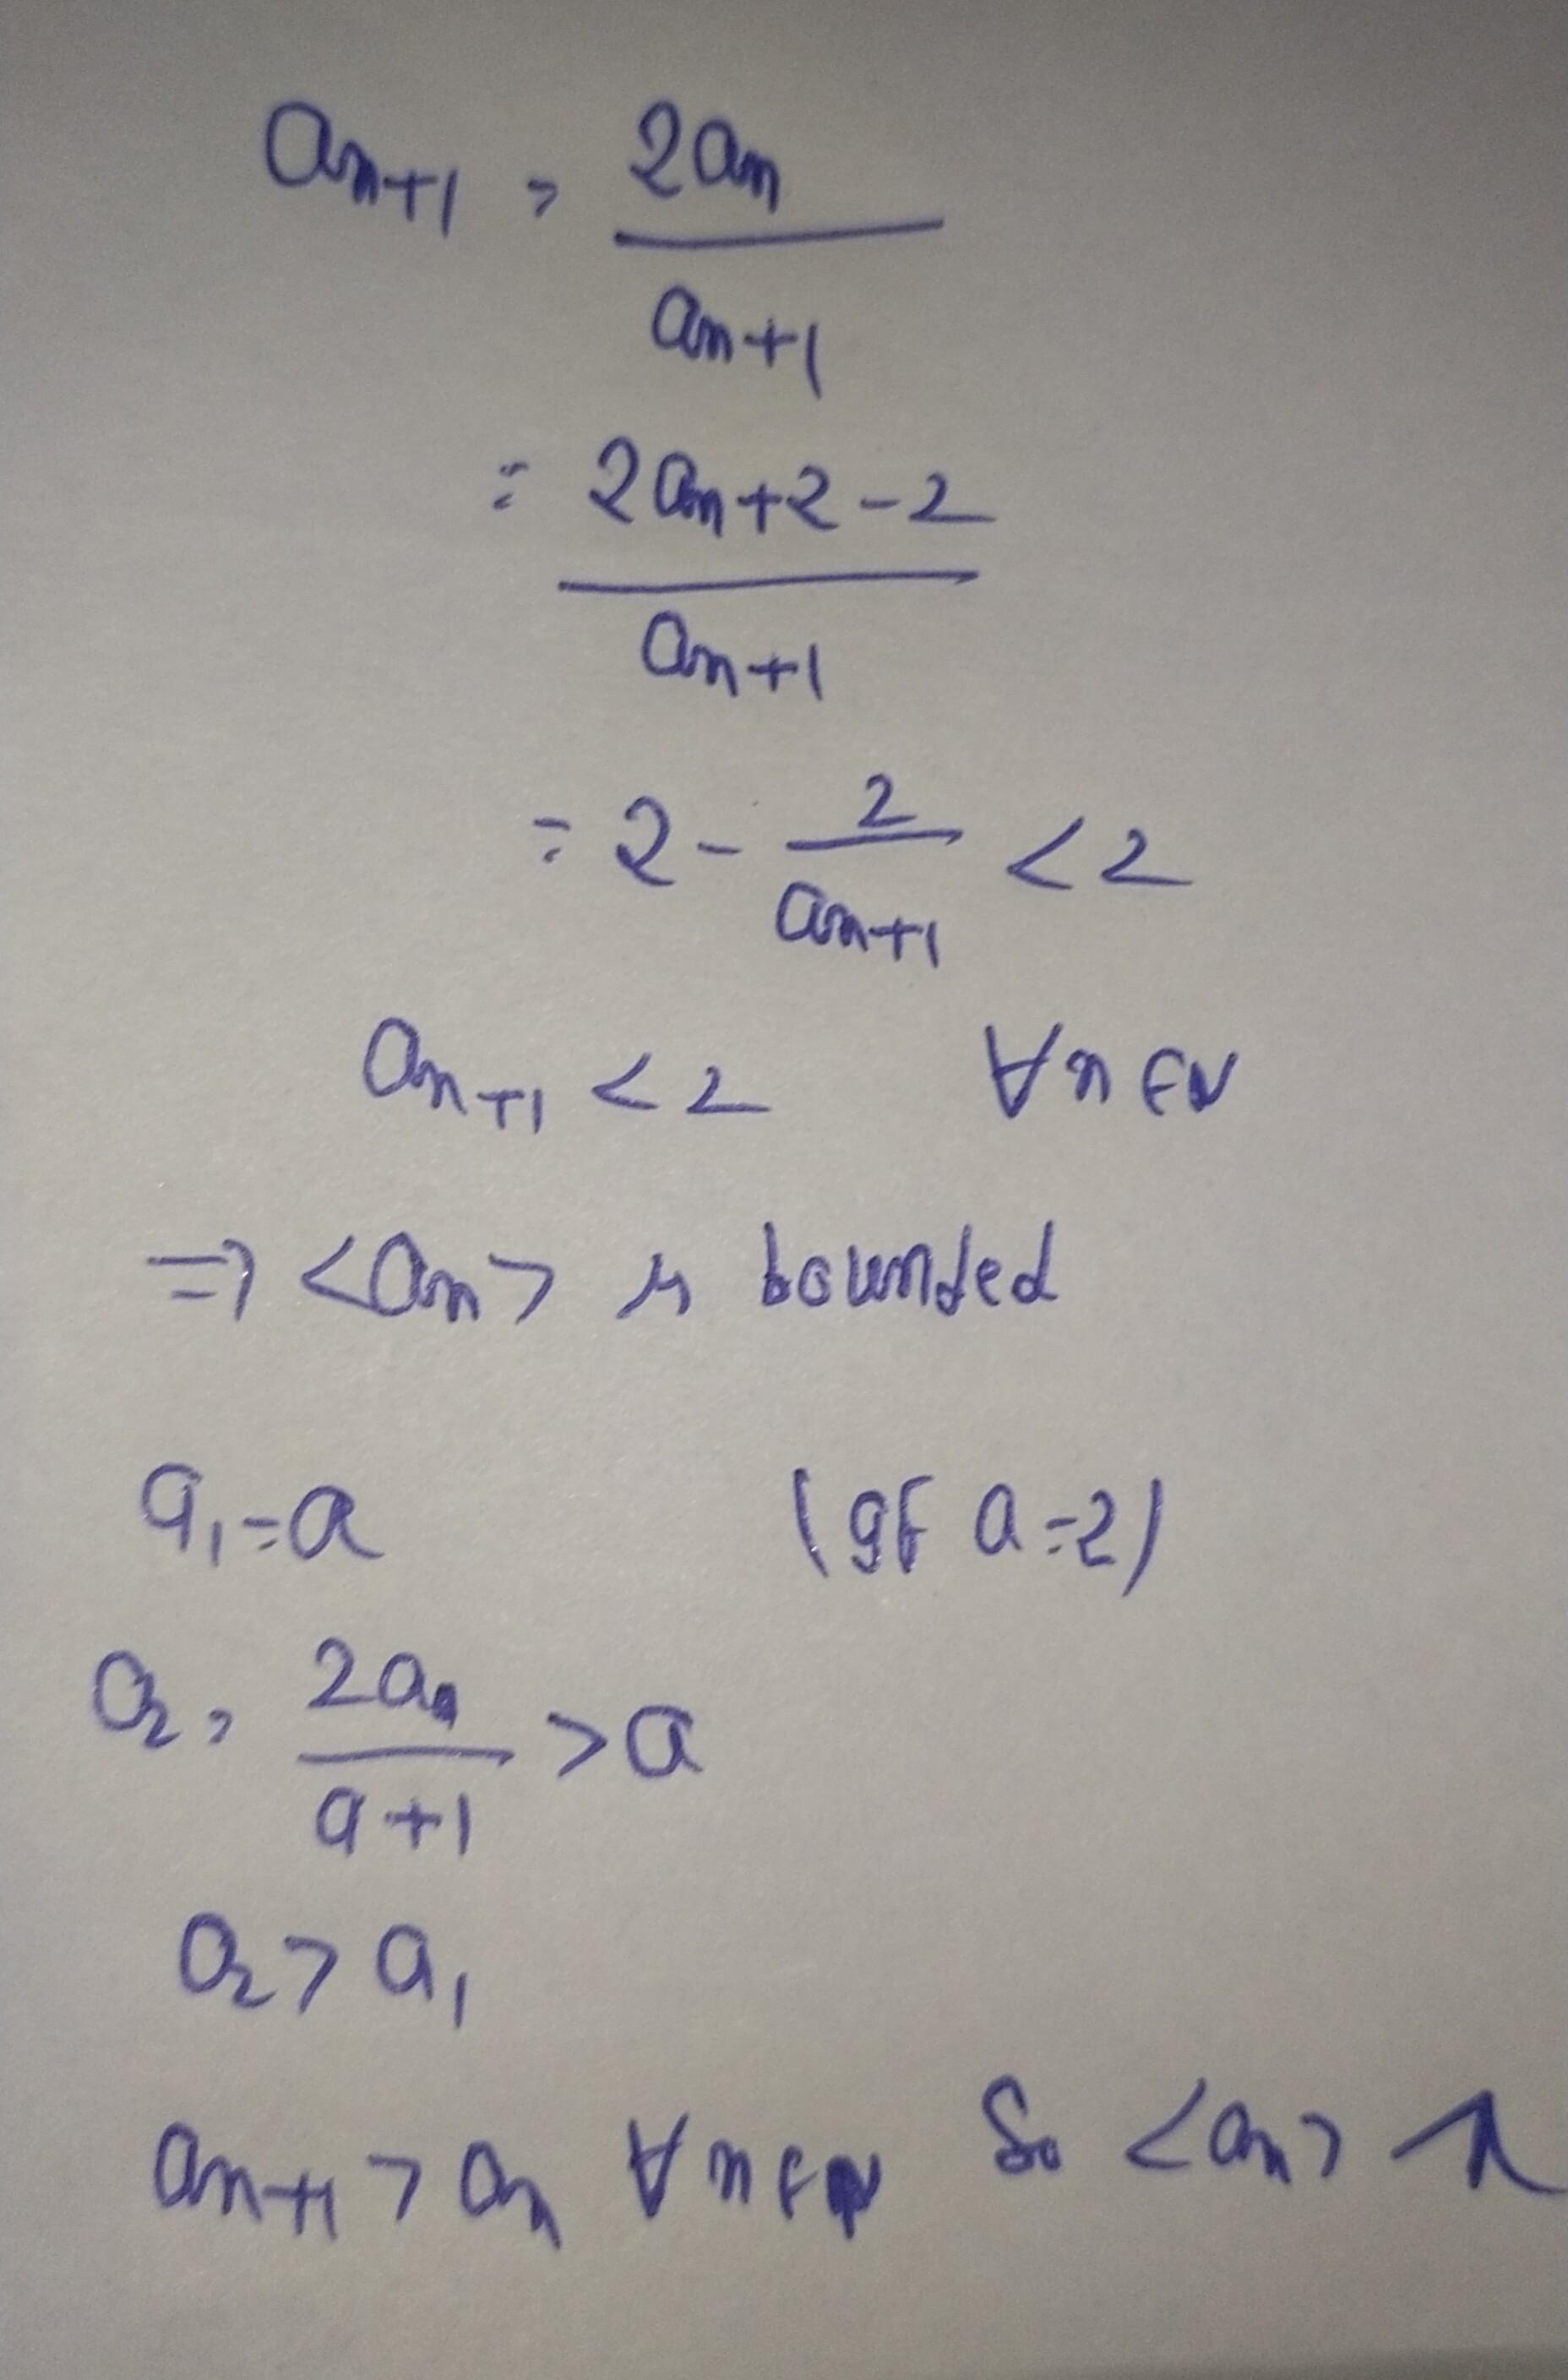 aₙ₊₁ = 2aₙ / aₙ+1
= 2aₙ+2-2 / aₙ+1
= 2 - 2 / aₙ+1 < 2
aₙ₊₁ < 2 ∀n∈N
=> <aₙ> is bounded
a₁ = a (If a=2)
a₂ = 2a / a+1 > a
a₂ > a₁
aₙ₊₁ > aₙ ∀n∈N So <aₙ> ↑